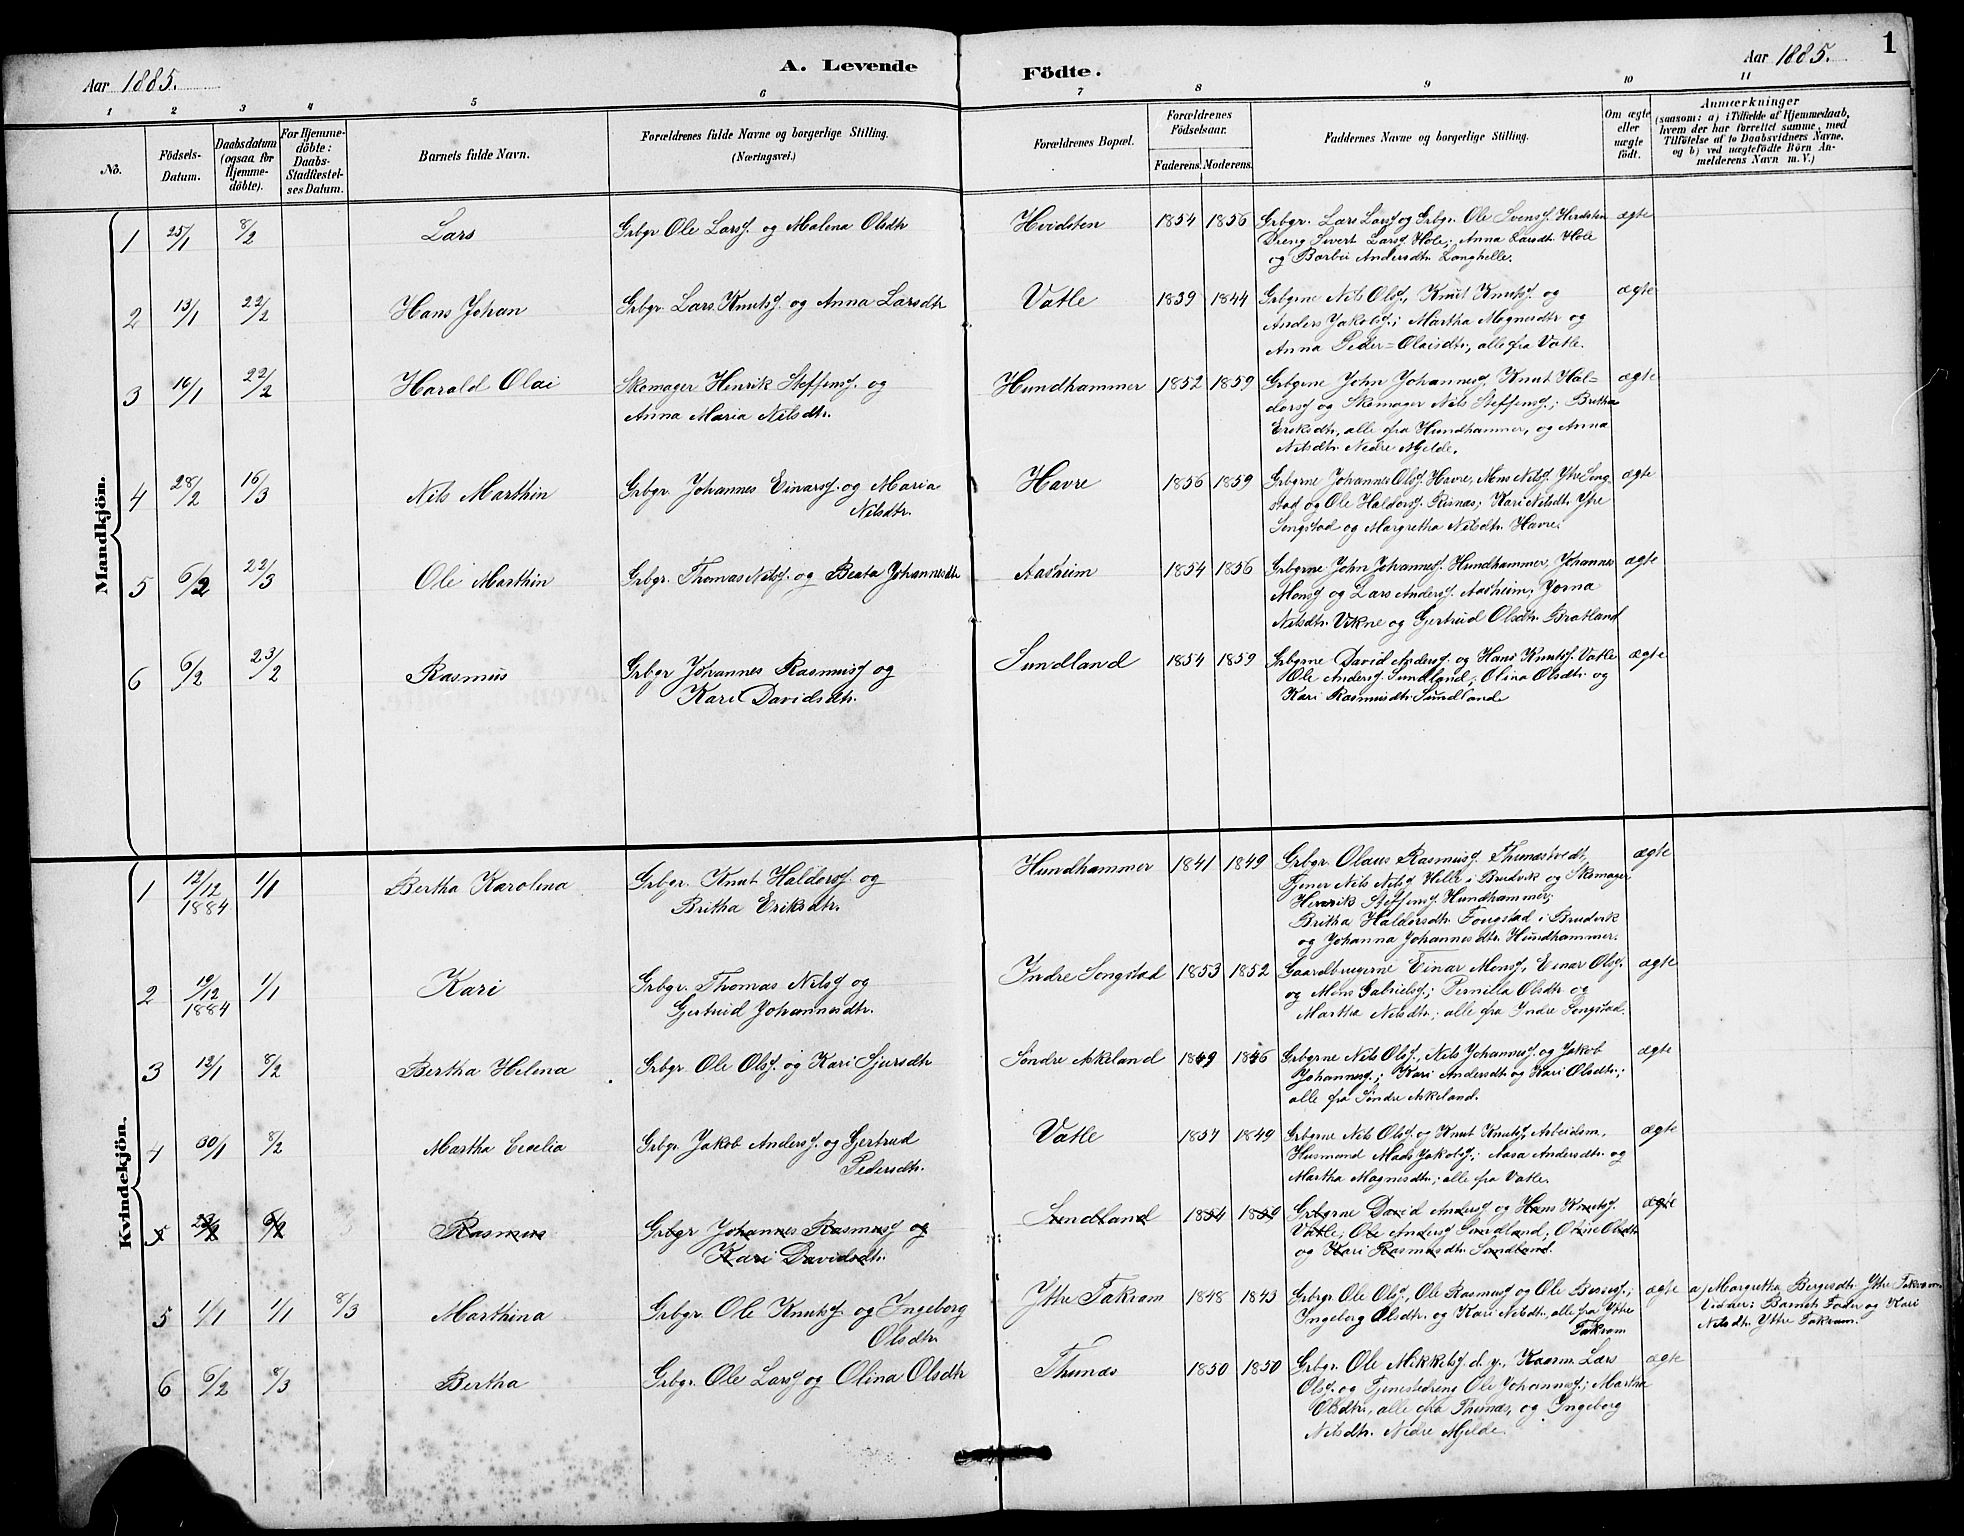 1
Aar 1885.
A. Levende Födte.
Aar 1885.
1 2 3 4 5 6 7 8 9 10 11
No.
Födsels-Datum.
Daabsdatum (ogsaa for Hjemme-döbte).
For Hjemme-döbte: Daabs-Stadfæstel-ses Datum.
Barnets fulde Navn.
Forældrenes fulde Navne og borgerlige Stilling.
(Næringsvei.)
Forældrenes Bopæl.
Forældrenes Födselsaar.
Faderens. Moderens.
Faddernes Navne og borgerlige Stilling.
Om ægte eller uægte født.
Anmærkninger
(saasom: a) i Tilfælde af Hjemmedaab,
hvem der har forrettet samme, med
Tilföielse af to Daabsvidners Navne.
og b) ved uægtefödte Börn An-
melderens Navn m. V.)
Mandkjön.
1 25/1 8/2 Lars Grbgr Ole Larsf. og Malena Olsdtr Hvidsten 1854 1856 Grbgr. Lars Larsf og Grbgr. Ole Svensf. Hvidsten ægte
Dreng Sivert Larsf. Hole; Anna Larsdtr. Hole
og Barbu Andersdtr. Langhelle.
2 13/1 22/2 Hans Johan Grbgr. Lars Knutsf. og Anna Larsdtr Vatle 1839 1844 Grbgrne Nils Olsf., Knut Knutsf. og ægte
Anders Jakobsf.; Martha Magnesdtr og
Anna Peder=Olaisdtr., alle fra Vatle.
3 16/1 22/2 Harald Olai Skomager Henrik Steffensf. og Hundhammer 1852 1859 Grbgrne John Johannesf., Knut Hal= ægte
Anna Maria Nilsdtr. dorsf og Skomager Nils Steffensf.; Britha
Eriksdtr., alle fra Hundhammer, og Anna
Nilsdtr. Nedre Mjelde.
4 28/2 16/3 Nils Marthin Grbgr. Johannes Einarsf. og Maria Havre 1856 1859 Grbgrne Johannes Olsf. Havre, Mons Nilsf. Ytre Song- ægte
Nilsdtr. stad og Ole Haldorsf. Risnæs; Kari Nilsdtr. Ytre
Songstad og Margretha Nilsdtr. Havre.
5 6/2 22/3 Ole Marthin Grbgr. Thomas Nilsf. og Beata Johannesdtr Aasheim 1854 1856 Grbgrne John Johannesf. Hundhammer, Johannes ægte
Monsf og Lars Andersf. Aasheim, Jorna
Nilsdtr. Vikne og Gjertrud Olsdtr. Bratland
6 6/2 23/2 Rasmus Grbgr Johannes Rasmusf og Sundland 1854 1859 Grbgrne David Andersf. og Hans Knutsf. Vatle ægte
Kari Davidsdtr. Ole Andersf. Sundland; Olina Olsdtr. og
Kari Rasmusdtr. Sundlande
Kvindekjön.
1 12/12 1884 1/1 Bertha Karolina Grbgr. Knut Haldorsf. og Hundhammer 1841 1849 Grbgr. Olaus Rasmusf. Thunæstvedt, ægte
Britha Eriksdtr. Tjener Nils Nilsf Helle i Brudvik og Skomager
Henrik Steffensf Hundhammer;
Britha Haldorsdtr. Fougstad i Brudvik
og Johanna Johannesdtr. Hundhammer.
2 19/12 1884 1/1 Kari Grbgr. Thomas Nilsf og Indre Songstad 1853 1852 Gaardbrugerne Einar Monsf., Einar Olsf. ægte
Gjertrud Johannesdtr. og Mons Gabrielsf.; Pernilla Olsdtr. og
Martha Nilsdtr.; alle fra Indre Songstad.
3 12/1 8/2 Bertha Helena Grbgr. Ole Olsf. og Kari Sjursdtr Søndre Askeland 1849 1846 Grbgrne Nils Olsf., Nils Johannesf. og Jakob ægte
Johannesf.; Kari Andersdtr og Kari Olsdtr.;
alle fra Søndre Askeland.
4 30/1 8/2 Martha Cecelia Grbgr. Jakob Andersf. og Gjertrud Vatle 1857 1849 Grbgrne Nils Olsf. og Knut Knutsf. Arbeidsm., ægte
Pedersdtr. Husmand Mads Jakobsf.; Aasa Andersdtr. og
Martha Magnesdtr.; alle fra Vatle.
5 23/2 6/2 Rasmus Grbgr Johannes Rasmusf og Sundland 1854 1859 Grbgrne David Andersf og Hans Knutsf. ægte
Kari Davidsdtr. Vatle, Ole Andersf Sundland, Oline Olsdtr
og Kari Rasmusdtr. Sundland.
5 1/1 1/1 8/3 Marthina Grbgr. Ole Knutsf og Ingeborg Ytre Takvam 1848 1843 Grbrgr Ole Olsf., Ole Rasmusf og Ole Børresf.; ægte a) Margretha Bergesdtr. Ytre Takvam
Olsdtr. Ingeborg Olsdtr. og Kari Nilsdtr., alle fra Ytre Vidner: Barnets Fader og Kari
Takvam Nilsdtr. Ytre Takvam.
6 6/2 8/3 Bertha Grbgr. Ole Larsf og Olina Olsdtr Thunæs 1850 1850 Grbgr. Ole Mikkelsf. d. y., Kaarm. Lars ægte
Olsf. og Tjenestedreng Ole Johannesf.; Martha
Olsdtr., alle fra Thunæs, og Ingeborg
Nilsdtr. Nedre Mjelde.